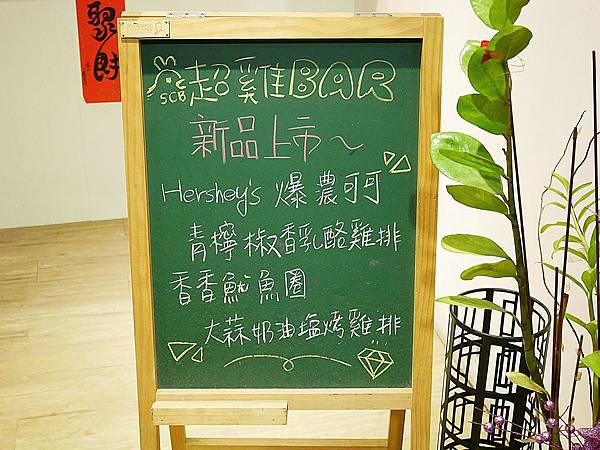 SCB 超雞BAR
新品上市~
Hershey's 爆濃可可
青檸椒香乳酪雞排
香香魷魚圈
大蒜奶油塩烤雞排